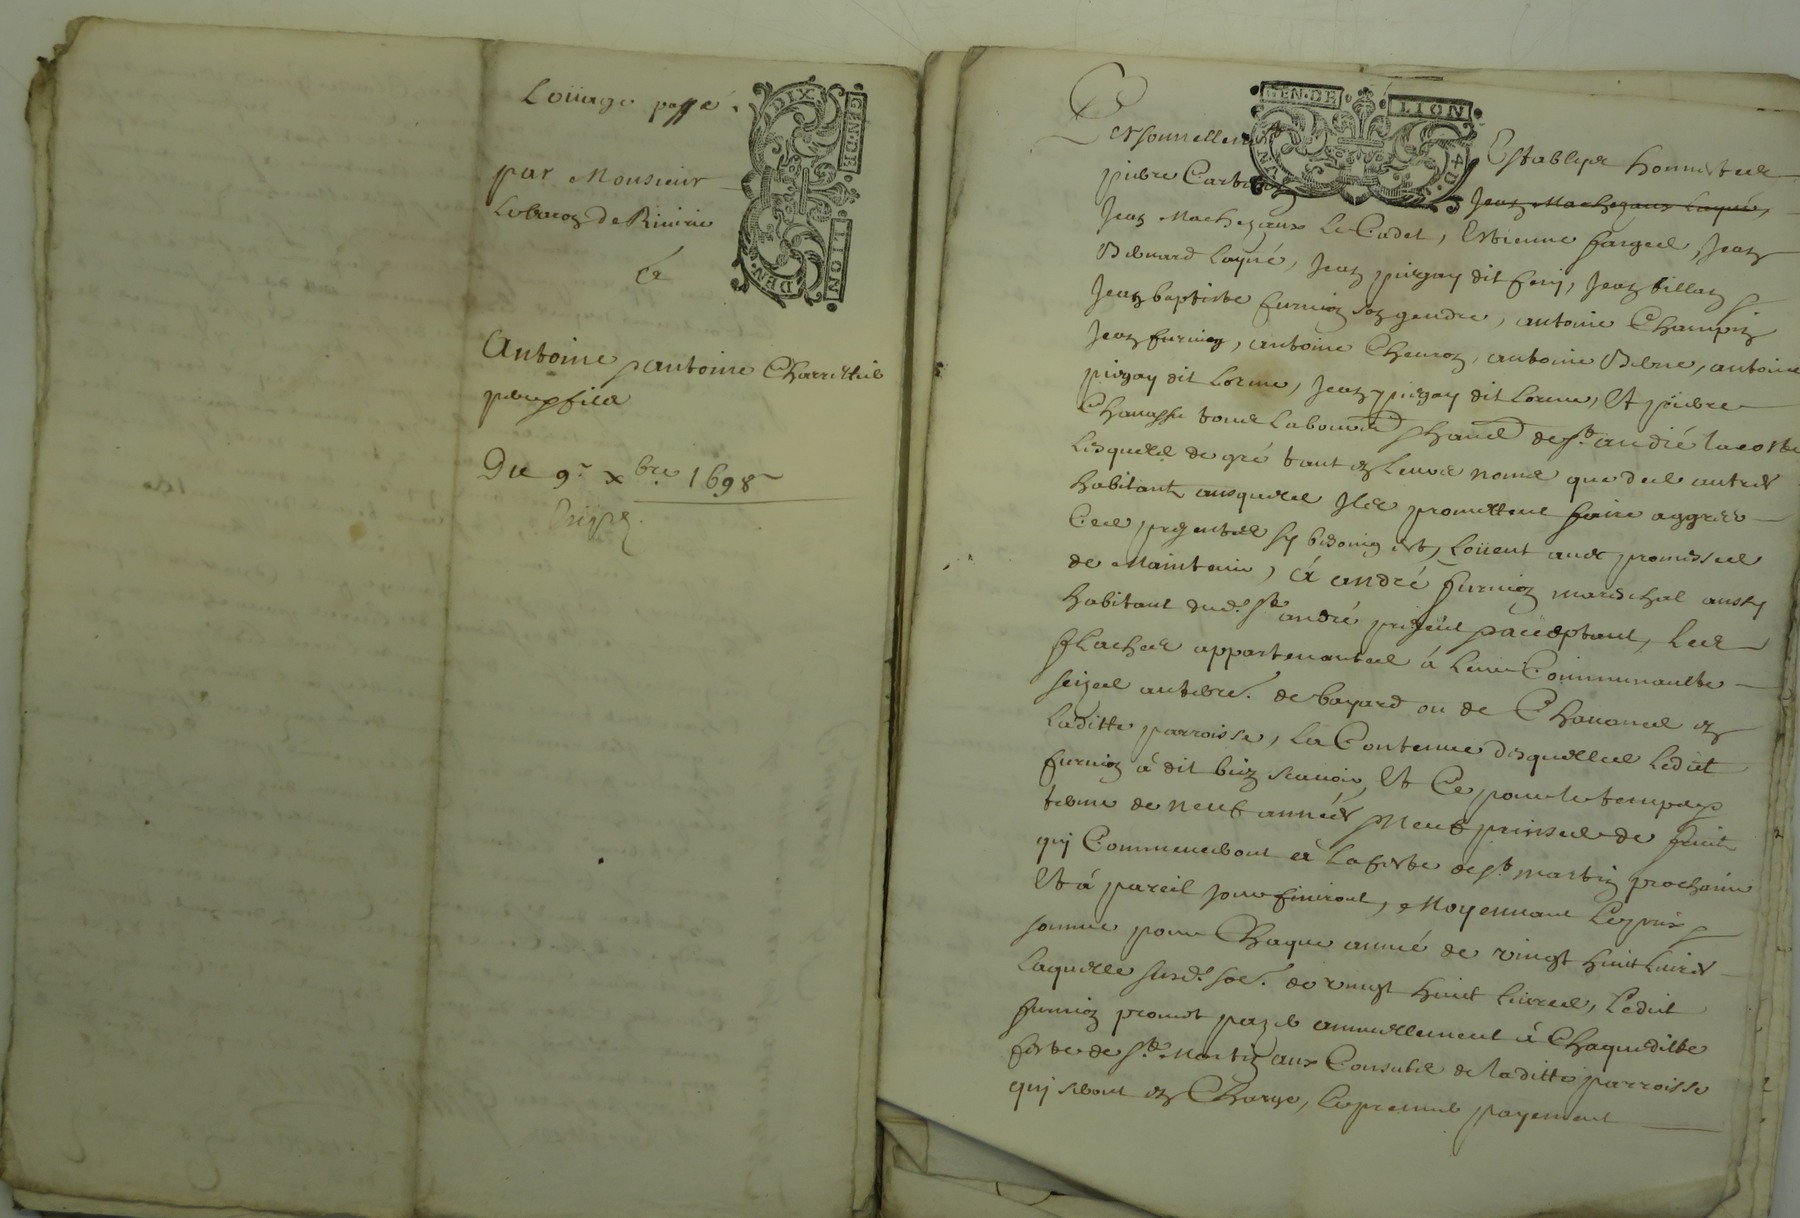 Loüage passé
par Monsieur
Le baron de Riuirie
à
Antoine & antoine Charretier
pere & fils
Du 9e xbre 1698
GEN. DE LION
DIX DEN.
GEN. DE LION
Personnellement Establys honnestes
pierre Jean Machezaux Layné,
Jean Machezaux Le Cadet, Estienne fargeel, Jean
Bernard Layné, Jean pirgay dit feny, Jean billas &
Jean baptiste furnion son gendre, antoine Champin
Jean furnion, antoine Chenron, antoine Bene, antoine
pirgay dit Lorme, Jean pirgay dit Lorme, Et pierre
Chanasse tous Laboureurs & habitans de St andré lacoste
Lesquels de gré tant en Leurs noms que des autres
habitants ausquels Ils promettent faire aggréer
Ces presentes sy besoing est, Loüent auec promesses
de Maintenir, à andré furnion mareschal aussy
habitant dud. St andré present & acceptant, Les
flaches appartenantes à Leur Communaulté
seizes au terre. de bayard ou de Chauanes en
Laditte parroisse, La Contenue desquelles Ledit
furnion à dit bien sçauoir, Et Ce pour le temps &
terme de neuf années & neuf prinses de fruit
qui Commenceront à La feste de St martin prochaine
Et à pareil jour finiront, Moyennant Le prix &
somme pour Chaque année de vingt huit Liures
Laquelle susd. so.e de vingt huit Liures, Ledit
furnion promet payer annuellement à Chaque ditte
feste de St Martin aux Consuls de laditte parroisse
qui seront en Charge, Le premier payement